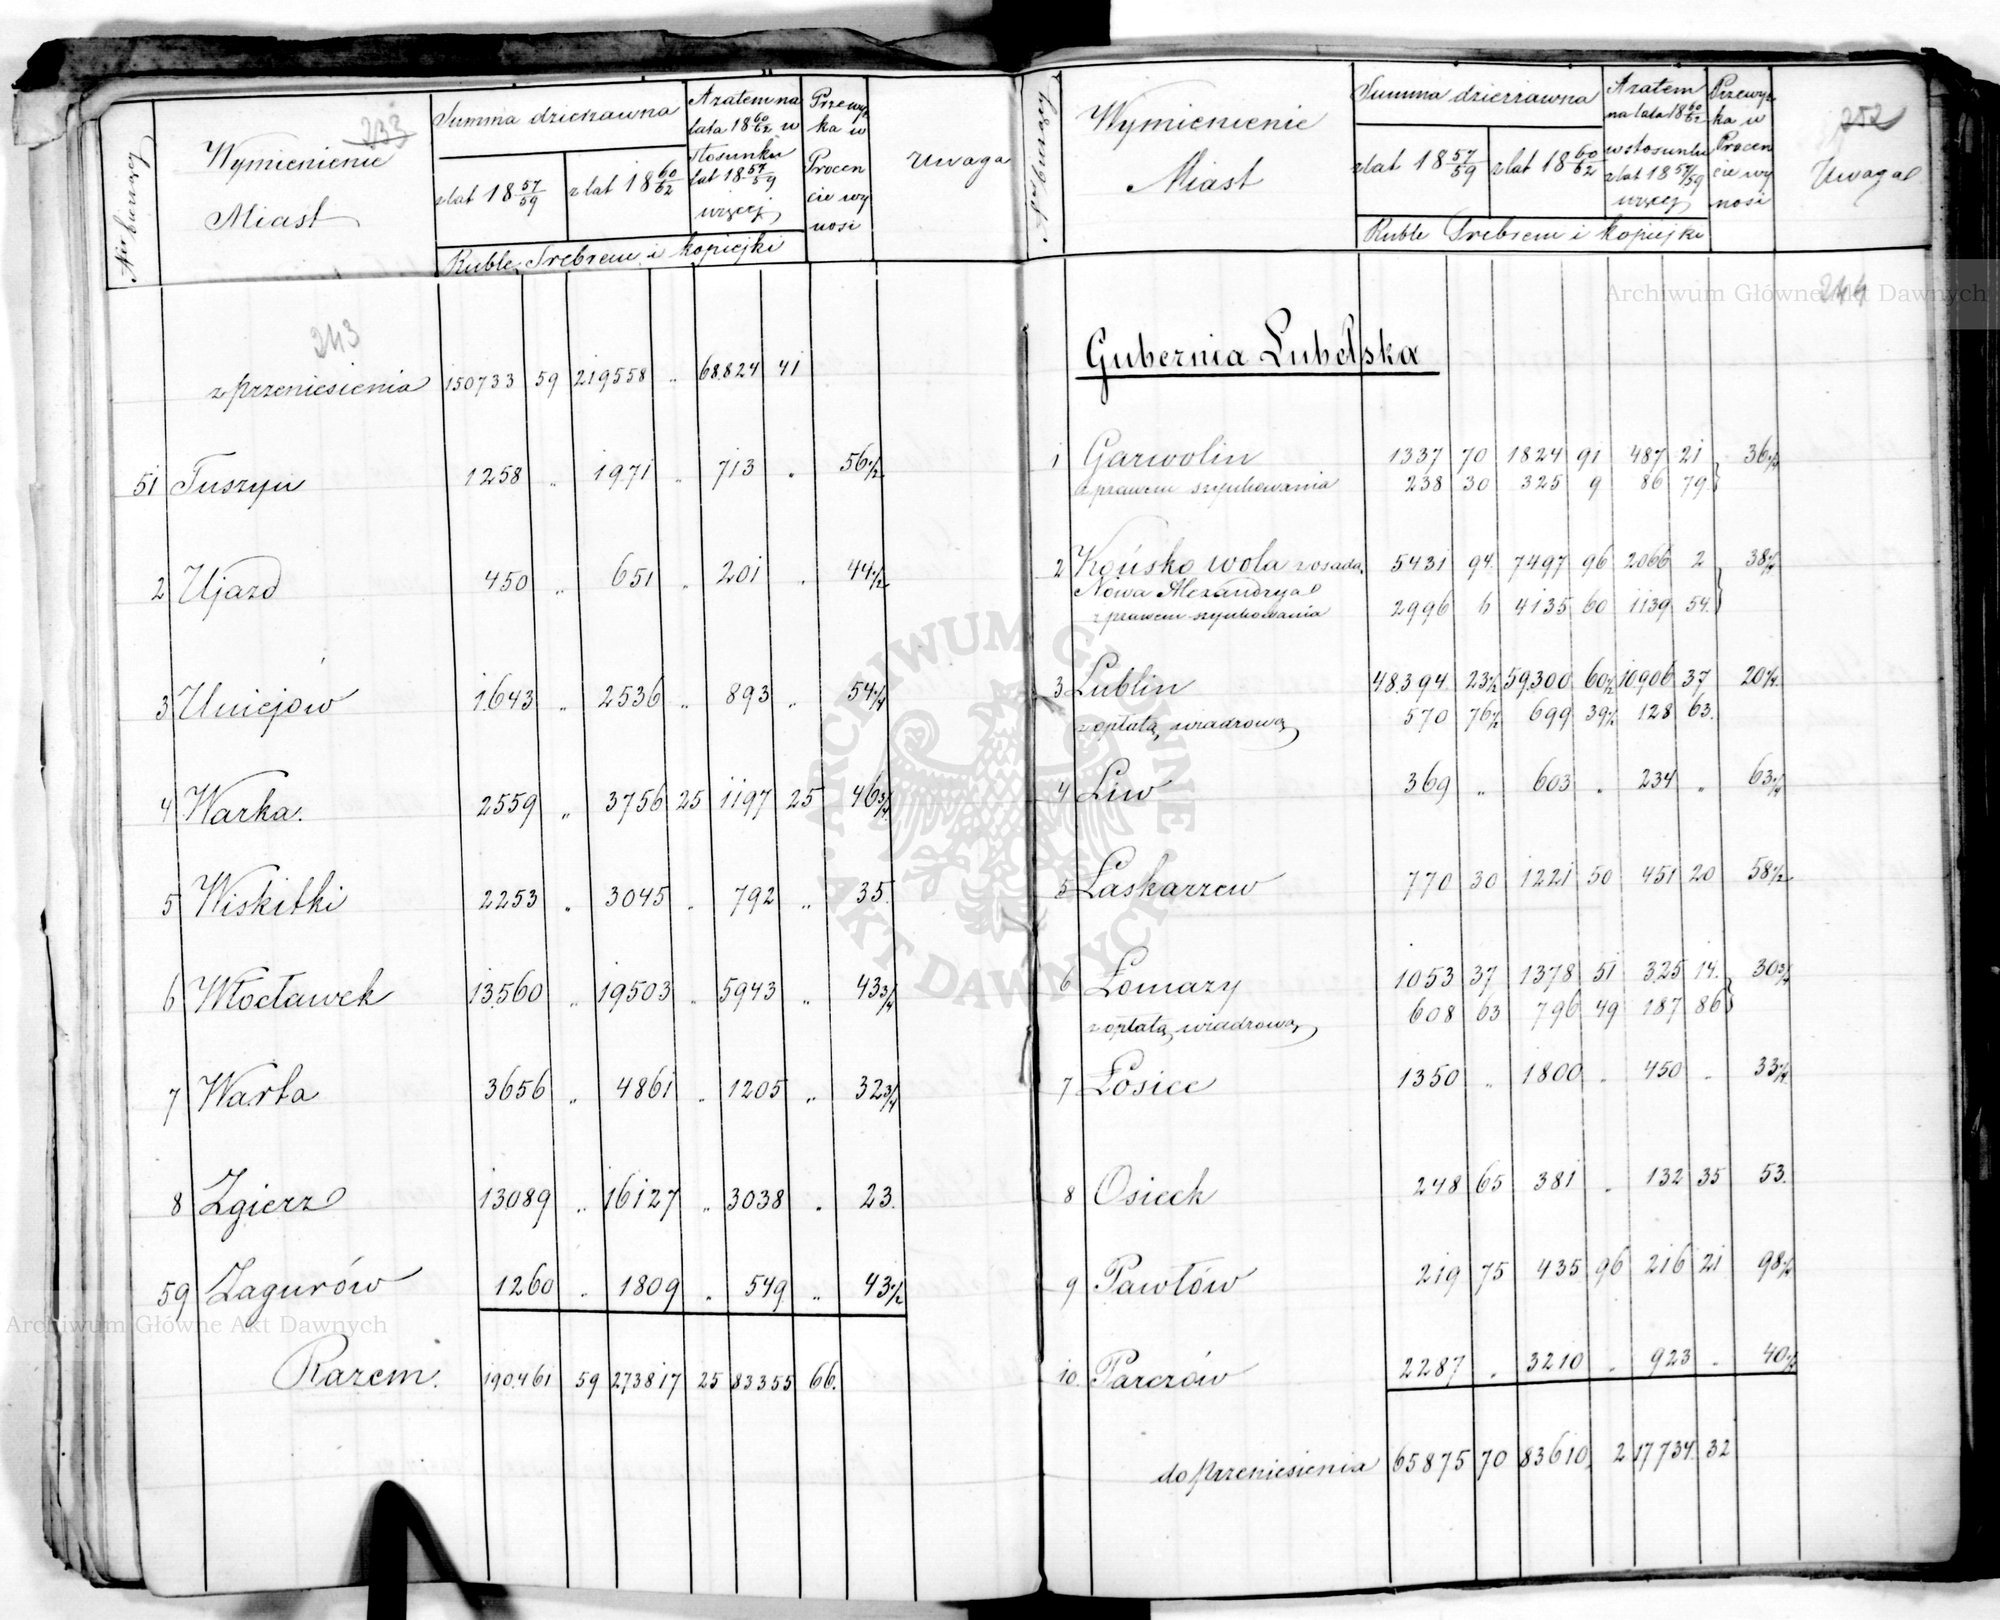 Nr bieżący
233
Wymienienie Miast
Summa dzierżawna
z lat 18 57/59
z lat 18 60/62
A zatem na lata 18 60/62 w stosunku lat 18 57/59 więcej
Ruble Srebrem i kopiejki
Przewyżka w Procencie wynosi
Uwaga
243
z przeniesienia 150733 59 219558 „ 68.824 41
51 Tuszyn 1258 „ 1971 „ 713 „ 56 1/2
2 Ujazd 450 „ 651 „ 201 „ 44 1/2
3 Uniejów 1643 „ 2536 „ 893 „ 54 1/4
4 Warka. 2559 „ 3756 25 1197 25 46 3/4
5 Wiskitki 2253 „ 3045 „ 792 „ 35.
6 Włocławek 13.560 „ 19503 „ 5943 „ 43 3/4
7 Warta 3656 „ 4861 „ 1205 „ 32 3/4
8 Zgierz 13089 „ 16127 „ 3038 „ 23.
59 Zagurów 1260 „ 1809 „ 549 „ 43 1/2
Razem. 190.461 59 273817 25 83355 66.
Nr bieżący
Wymienienie Miast
Summa dzierżawna
z lat 18 57/59
z lat 18 60/62
A zatem na lata 18 60/62 w stosunku z lat 18 57/59 więcej
Ruble Srebrem i kopiejki
Przewyżka w Procencie wynosi
252
Uwaga
244
Gubernia Lubelska
1 Garwolin 1337 70 1824 91 487 21 36 1/2
z prawem szynkowania 238 30 325 9 86 79
2 Końsko wola z osadą 5431 94. 7497 96 2066 2 38 1/4
Nowa Alexandrya
z prawem szynkowania 2996 6 4135 60 1139 54.
3 Lublin 48.394. 23 1/2 59.300 60 1/2 10.906 37 20 1/4.
z opłatą wiadrową 570 76 1/2 699 39 1/2 128 63.
4 Liw 369 „ 603 „ 234 „ 63 1/4
5 Laskarzew 770 30 1221 50 451 20 58 1/2
6 Łomazy 1053 37 1378 51 325 14. 30 3/4
z opłatą wiadrową 608 63 796 49 187 86
7 Łosice 1350 „ 1800 „ 450 „ 33 1/4.
8 Osieck 248 65 381 „ 132 35 53.
9 Pawłów 219 75 435 96 216 21 98 1/2
10. Parczów 2287 „ 3210 „ 923 „ 40 1/2
do przeniesienia 65875 70 83610. 2 17734. 32
Archiwum Główne Akt Dawnych
Archiwum Główne Akt Dawnych
· ARCHIWUM GŁÓWNE · AKT DAWNYCH